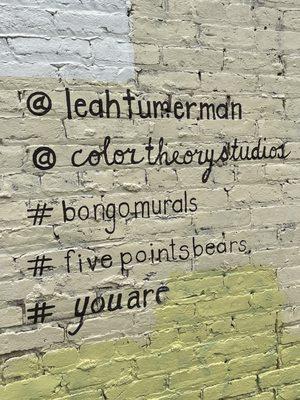 @ leahtumerman
@ colortheorystudios
# bongomurals
# fivepointsbears
# youare